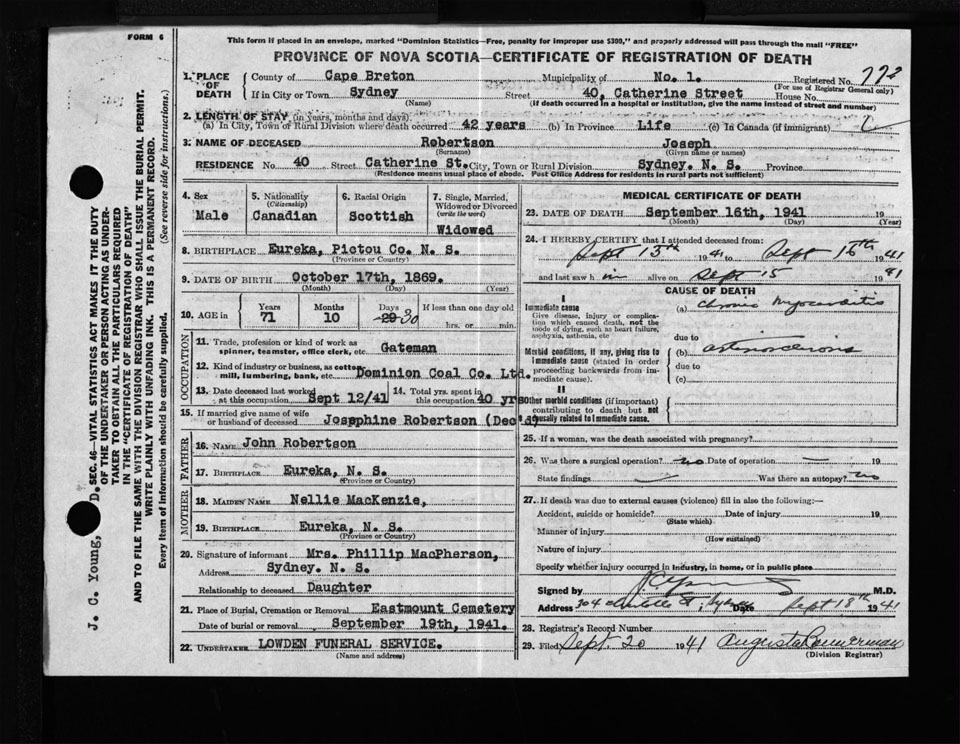 FORM 6
This form if placed in an envelope, marked "Dominion Statistics—Free, penalty for improper use $300," and properly addressed will pass through the mail "FREE"
PROVINCE OF NOVA SCOTIA—CERTIFICATE OF REGISTRATION OF DEATH
1. PLACE OF DEATH
County of Cape Breton Municipality of No. 1. Registered No. 772
(For use of Registrar General only)
If in City or Town Sydney Street 40, Catherine Street House No.
(Name) (If death occurred in a hospital or institution, give the name instead of street and number)
2. LENGTH OF STAY (in years, months and days)
(a) In City, Town or Rural Division where death occurred 42 years (b) In Province Life (c) In Canada (if immigrant)
3. NAME OF DECEASED Robertson Joseph
(Surname) (Given name or names)
RESIDENCE No. 40 Street Catherine St. City, Town or Rural Division Sydney. N. S. Province
(Residence means usual place of abode. Post Office Address for residents in rural parts not sufficient)
4. Sex
Male
5. Nationality (Citizenship)
Canadian
6. Racial Origin
Scottish
7. Single, Married, Widowed or Divorced (write the word)
Widowed
8. BIRTHPLACE Eureka, Pictou Co. N. S.
(Province or Country)
9. DATE OF BIRTH October 17th, 1869.
(Month) (Day) (Year)
10. AGE in Years 71 Months 10 Days 29 30 If less than one day old hrs. or min.
OCCUPATION
11. Trade, profession or kind of work as spinner, teamster, office clerk, etc. Gateman
12. Kind of industry or business, as cotton mill, lumbering, bank, etc. Dominion Coal Co. Ltd.
13. Date deceased last worked at this occupation Sept 12/41 14. Total yrs. spent in this occupation 40 yrs
15. If married give name of wife or husband of deceased Josephine Robertson (Dec'd)
FATHER
16. NAME John Robertson
17. BIRTHPLACE Eureka, N. S.
(Province or Country)
MOTHER
18. MAIDEN NAME Nellie MacKenzie,
19. BIRTHPLACE Eureka, N. S.
(Province or Country)
20. Signature of informant Mrs. Phillip MacPherson,
Address Sydney. N. S.
Relationship to deceased Daughter
21. Place of Burial, Cremation or Removal Eastmount Cemetery
Date of burial or removal September 19th, 1941.
22. UNDERTAKER LOWDEN FUNERAL SERVICE.
(Name and address)
MEDICAL CERTIFICATE OF DEATH
23. DATE OF DEATH September 16th, 1941 19
(Month) (Day)
24. I HEREBY CERTIFY that I attended deceased from:
Sept 13th 1941 to Sept 16th 1941
and last saw him alive on Sept 15 1941
CAUSE OF DEATH
I
Immediate cause
Give disease, injury or complication which caused death, not the mode of dying, such as heart failure, asphyxia, asthenia, etc
(a) Chronic Myocarditis
due to
Morbid conditions, if any, giving rise to immediate cause (stated in order proceeding backwards from immediate cause).
(b) arteriosclerosis
due to
(c)
II
other morbid conditions (if important) contributing to death but not causally related to immediate cause.
25. If a woman, was the death associated with pregnancy?
26. Was there a surgical operation? no Date of operation 19
State findings Was there an autopsy? no
27. If death was due to external causes (violence) fill in also the following:—
Accident, suicide or homicide? Date of injury 19
(State which)
Manner of injury
(How sustained)
Nature of injury
Specify whether injury occurred in industry, in home, or in public place
Signed by M.D.
Address 304 St, Sydney Date Sept 18th 1941
28. Registrar's Record Number
29. Filed Sept. 20 1941 Augusta Bannerman
(Division Registrar)
J. C. Young, D.
SEC. 46—VITAL STATISTICS ACT MAKES IT THE DUTY OF THE UNDERTAKER OR PERSON ACTING AS UNDERTAKER TO OBTAIN ALL THE PARTICULARS REQUIRED IN THE "CERTIFICATE OF REGISTRATION OF DEATH"
AND TO FILE THE SAME WITH THE DIVISION REGISTRAR WHO SHALL ISSUE THE BURIAL PERMIT.
WRITE PLAINLY WITH UNFADING INK. THIS IS A PERMANENT RECORD.
Every item of information should be carefully supplied. (See reverse side for instructions.)